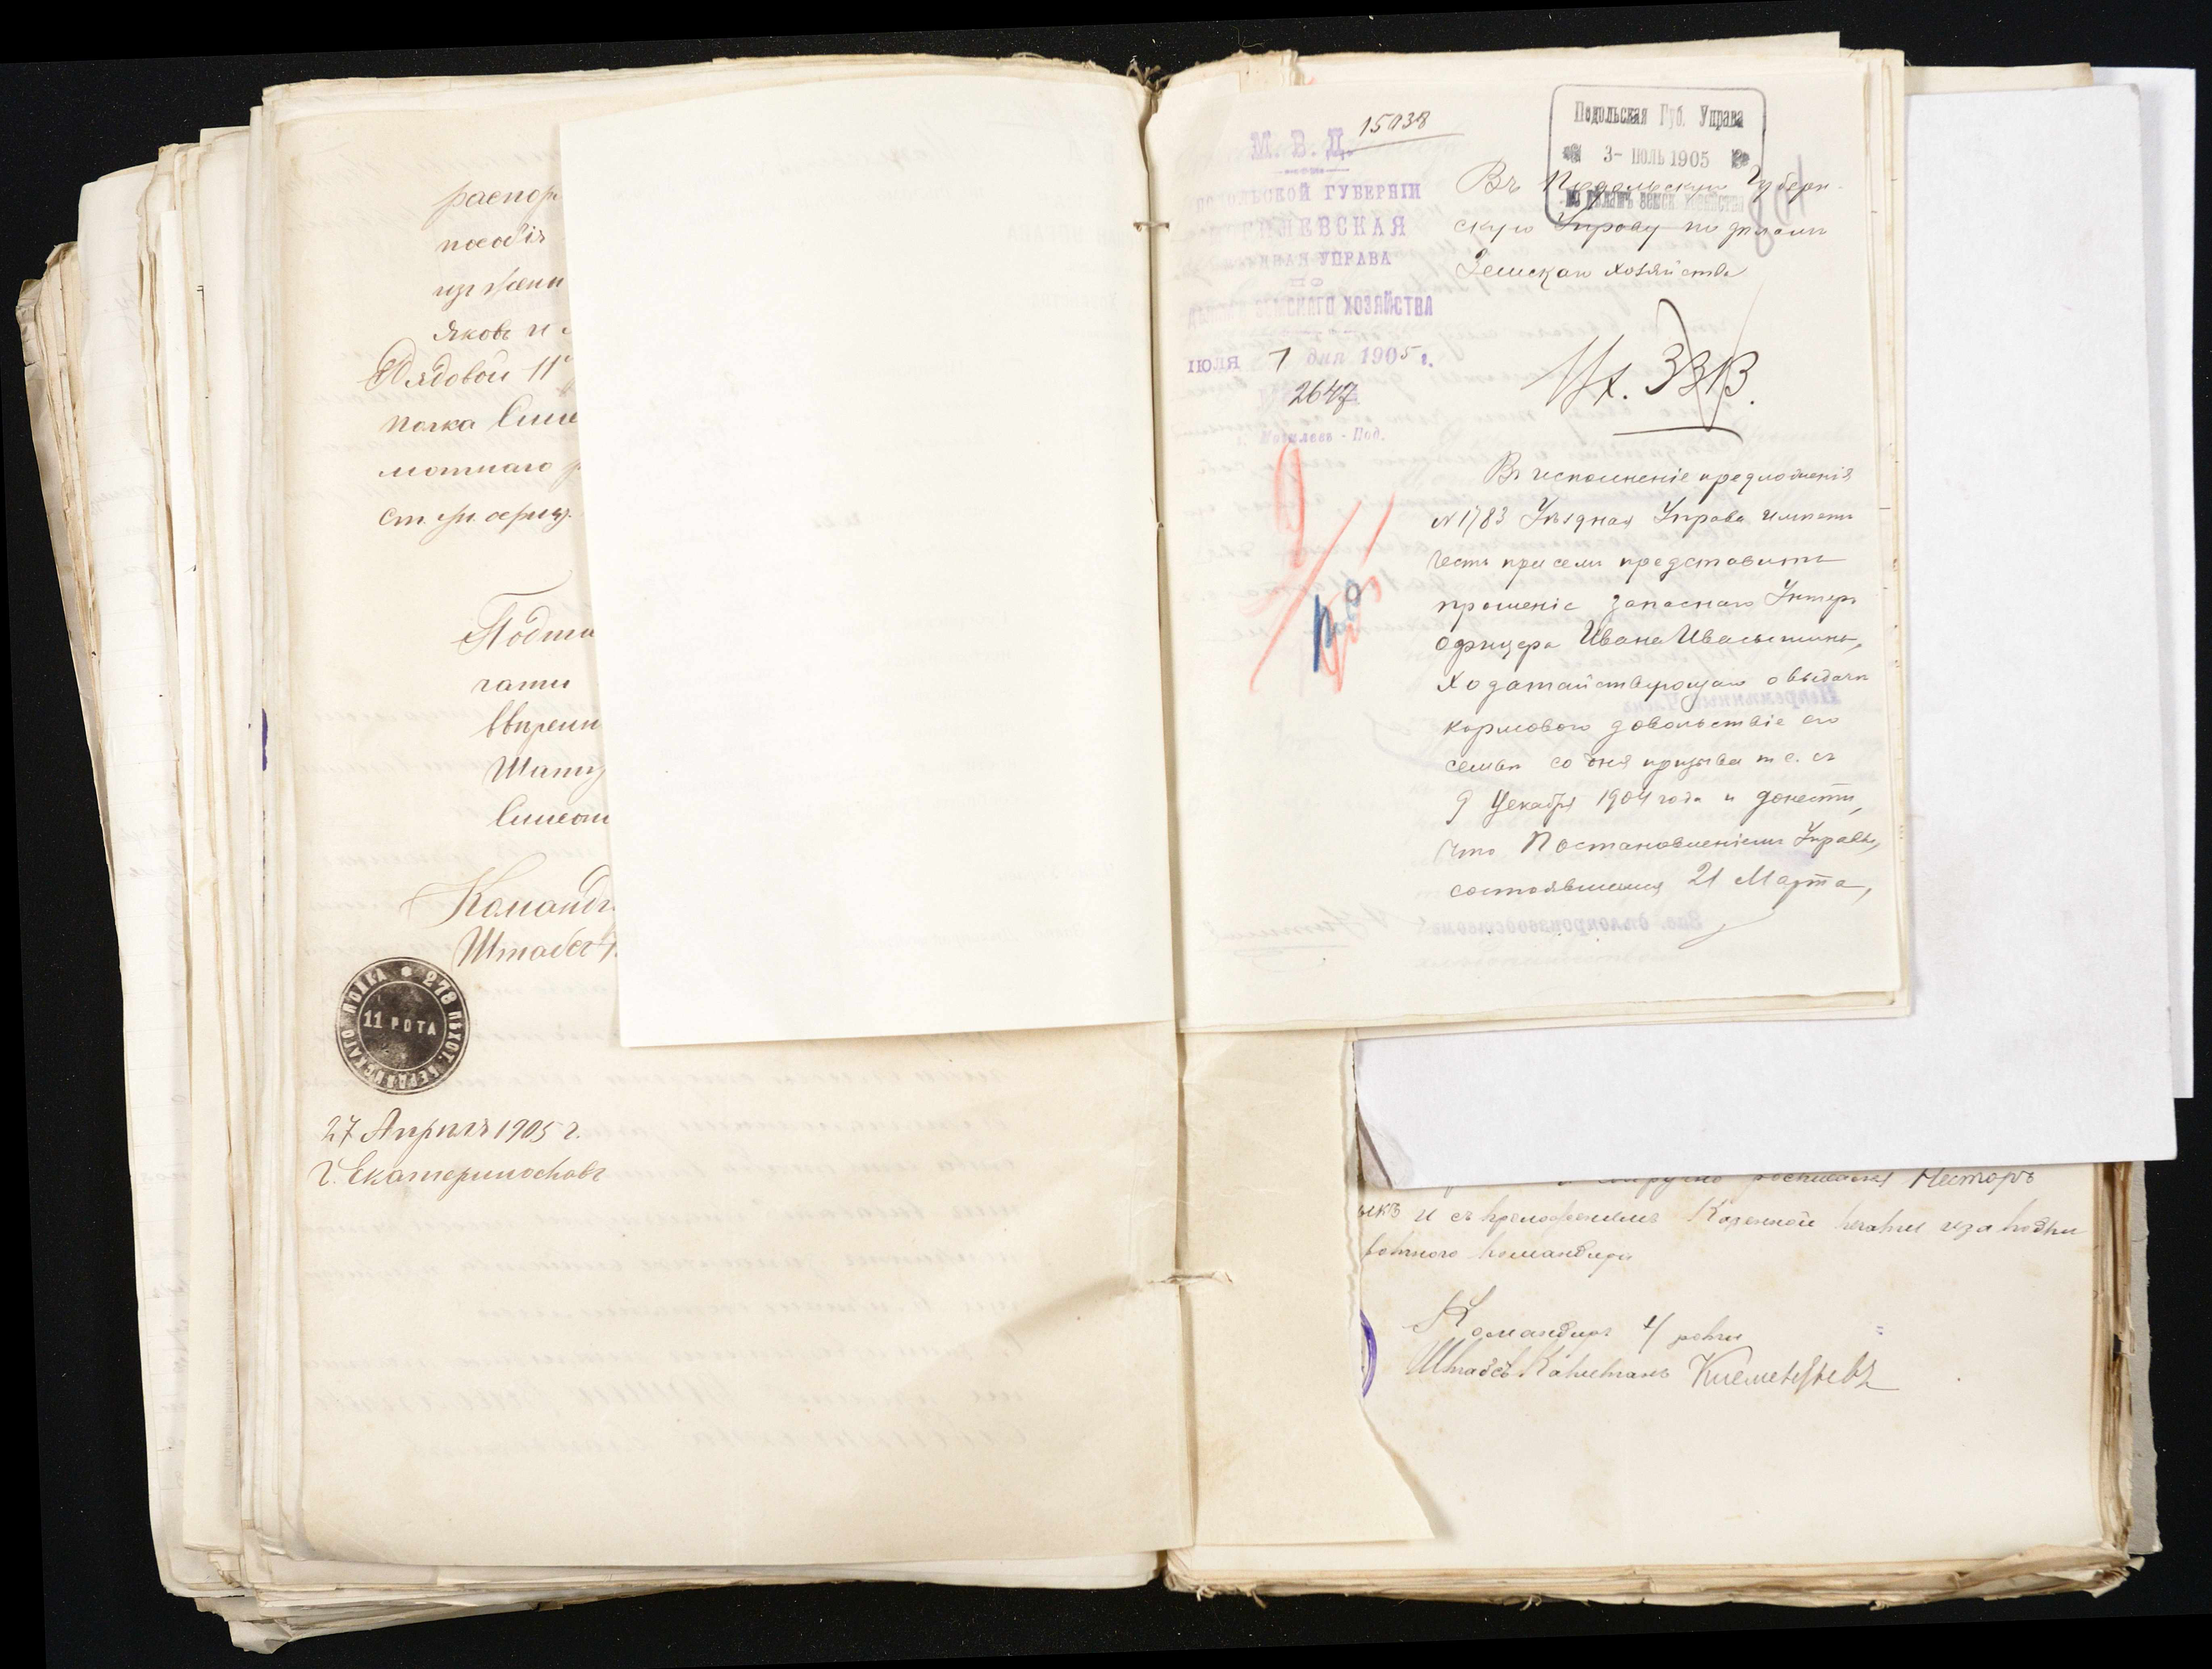 распор
пособія
Рядовой 11
полка Симе
мотнаго
Подпи
чати
ввѣренн
Команди
Штабсъ-К
278 ПѢХОТ. БЕРДЯНСКАГО ПОЛКА
11 РОТА
27 Апрѣля 1905 г.
г. Екатеринославъ
15038
М. В. Д.
ПОДОЛЬСКОЙ ГУБЕРНІИ
МОГИЛЕВСКАЯ
УПРАВА
ПО
ДѢЛАМЪ ЗЕМСКАГО ХОЗЯЙСТВА
ІЮЛЯ 1 дня 1905 г.
2647
Могилевъ - Под.
Подольская Губ. Управа
3- ІЮЛЬ 1905
по дѣламъ земск. хозяйства
Въ Подольскую Губерн-
скую Управу по дѣламъ
Земскаго хозяйства
Вх. 3313.
Въ исполненіе предложенія
№ 1783 Уѣздная Управа имѣетъ
честь при семъ представить
прошеніе запаснаго Унтеръ
офицера Ивана Ивасышина,
ходатайствующаго о выдачѣ
кормового довольствіе его
семьѣ со дня призыва т. е. съ
9 Декабря 1904 года и донести,
что Постановленіемъ Управы,
состоявшимся 21 Марта,
росписался Несторъ
и съ приложеніемъ Казенной печати и за подпи
ротного командира
Командиръ 4 роты
Штабсъ-Капитанъ